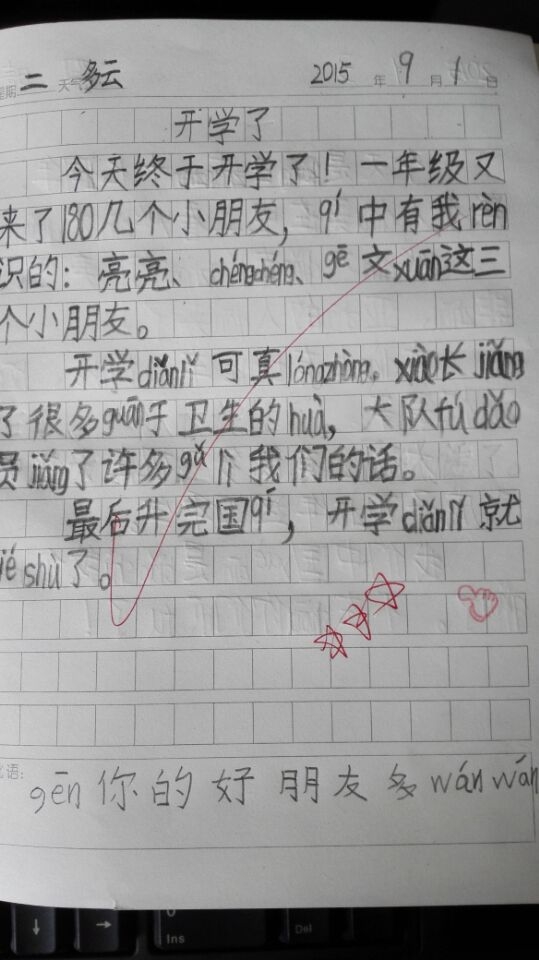 星期二 天气多云 2015年9月1日
开学了
今天终于开学了！一年级又
来了180几个小朋友，qí中有我rèn
识的：亮亮、chéngchéng、gē文xuān这三
个小朋友。
开学diǎnlǐ可真lóngzhòng。xiào长jiǎng
了很多guān于卫生的huà，大队fú dǎo
员jiǎng了许多gǔ励我们的话。
最后升完国qí，开学diǎnlǐ就
jié shù了。
语：
gēn你的好朋友多wán wán
Ins
Del